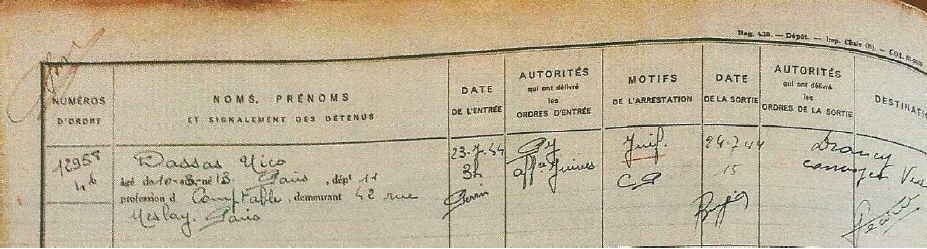 Reg. 439. — Dépôt. — Imp. Chaix (B). — COL.
NUMÉROS D'ORDRE
NOMS, PRÉNOMS ET SIGNALEMENT DES DÉTENUS
DATE DE L'ENTRÉE
AUTORITÉS qui ont délivré les ORDRES D'ENTRÉE
MOTIFS DE L'ARRESTATION
DATE DE LA SORTIE
AUTORITÉS qui ont délivré les ORDRES DE LA SORTIE
DESTINATION
Dassas Nico
23-7-44
Juif
24-7-44
Drancy
3h
affres Juives
15
âgé de né Paris, dépt
profession d Comptable, demeurant 42 rue
Meslay. Paris